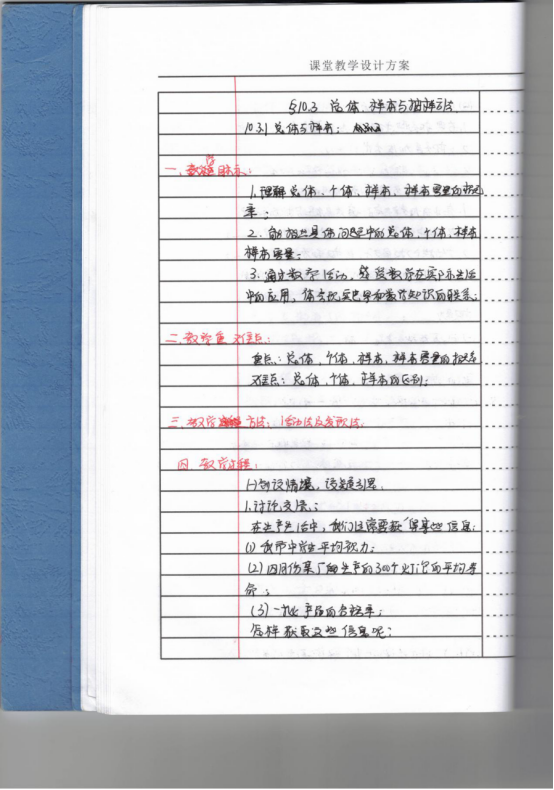 课堂教学设计方案
§10.3 总体、样本与抽样方法
10.3.1 总体与样本:
一、教学目标:
1.理解总体、个体、样本、样本容量的概
念;
2.能指出具体问题中的总体、个体、样本
样本容量;
3.通过数学活动,体会数学在实际生活
中的应用,体会现实世界和数学知识的联系;
二、教学重难点:
重点:总体、个体、样本、样本容量的概念
难点:总体、个体、样本的区别;
三、教学方法:活动法及发现法.
四、教学过程:
(一)创设情境,设疑引思.
1.讨论交流:
在生产生活中,我们经常需要获得某些信息:
(1)我市中学生平均视力;
(2)四月份某厂所生产的300个灯泡的平均寿
命;
(3)一批产品的合格率;
怎样获取这些信息呢?